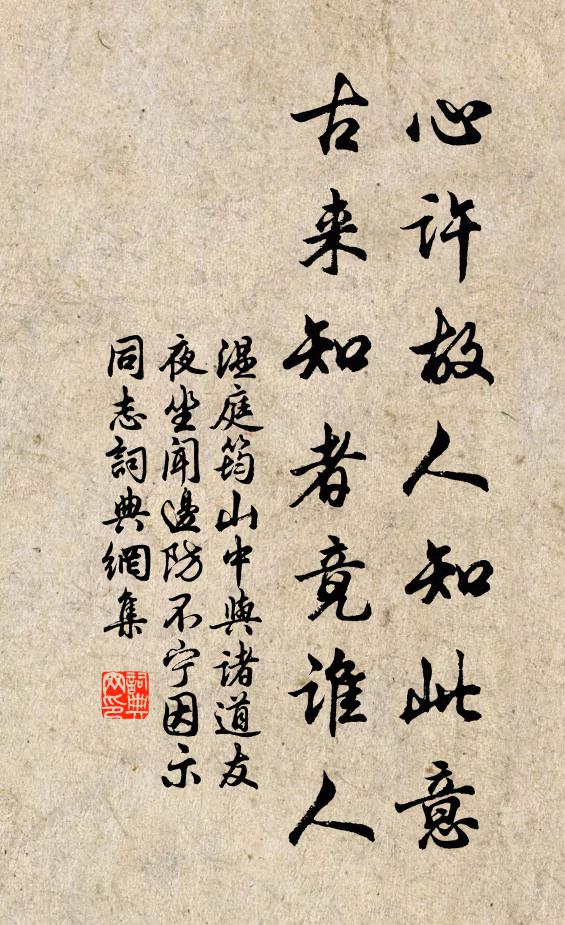 心许故人知此意
古来知者竟谁人
温庭筠山中與诸道友
夜坐闻邊防不宁因示
同志詞典網集
詞典
网印